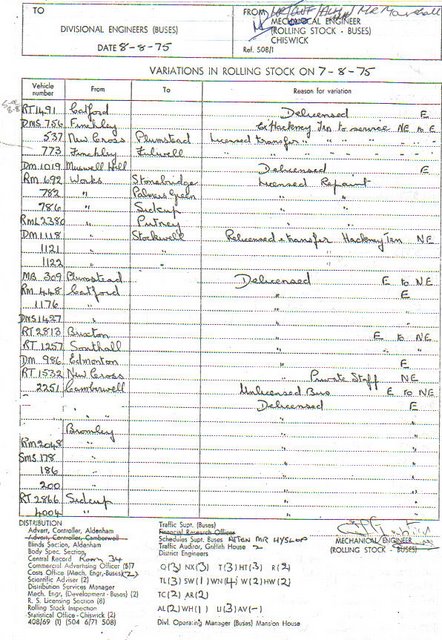 TO
DIVISIONAL ENGINEERS (BUSES)
DATE 8-8-75
FROM
MECHANICAL ENGINEER
(ROLLING STOCK - BUSES)
CHISWICK
Ref. 508/1
VARIATIONS IN ROLLING STOCK ON 7-8-75
Vehicle number From To Reason for variation
RT1491 Catford Delicensed E
DMS 756 Finchley Ex Hackney Jen to service NE to E
537 New Cross Plumstead Licensed transfer " " " " "
773 Finchley Fulwell " " " " " "
DM 1019 Muswell Hill Delicensed E
RM 692 Works Stonebridge Licensed Repaint
782 " Palmers Green " "
786 " Sidcup " "
RML2380 " Putney " "
DM1118 " Stockwell Relicensed & transfer Hackney Jen NE
1121 " "
1122 " "
MB 309 Plumstead Delicensed E to NE
RM 448 Catford " E
1176 " "
DMS1437 " "
RT2813 Brixton " E to NE
RT 1257 Southall " " "
DM 986 Edmonton " E
RT 1532 New Cross " Private Staff NE
2251 Camberwell Unlicensed Bus E to NE
" " Delicensed E
Bromley " "
RM2048 " " "
SMS 178 " " "
186 " " "
200 " " "
RT 2866 Sidcup " "
4004 " " "
DISTRIBUTION
Advert, Controller, Aldenham
Advert, Controller, Camberwell
Blinds Section, Aldenham
Body Spec. Section
Central Record Room 34
Commercial Advertising Officer
Costs Office (Mech. Engr.-Buses) (2)
Scientific Adviser (2)
Distribution Services Manager
Mech. Engr. (Development - Buses) (2)
R. S. Licensing Section (8)
Rolling Stock Inspection
Statistical Office - Chiswick (2)
408/69 (1) (504 6/71 508)
Traffic Supt. (Buses)
Financial Research Officer
Schedules Supt. Buses ATTEN MR HYSLOP
Traffic Auditor, Griffith House 2
District Engineers
O(3) NX(3) T(3) HT(3) R(2)
TL(3) SW(1) WN(4) W(2) HW(2)
TC(2) AR(2)
AL(2) WH(1) U(3) AV(-)
Divl. Operating Manager (Buses) Mansion House
MECHANICAL ENGINEER
(ROLLING STOCK - BUSES)